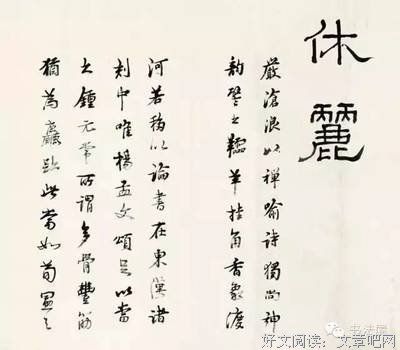 休麗
嚴滄浪以禪喻詩獨尚神
韵譬之羊挂角香象渡
河若移以論書在東漢諸
刻中唯楊孟文頌足以當
之鍾元常所謂多骨豐筋
猶為跡此當如荀
好文阅读：文章吧网